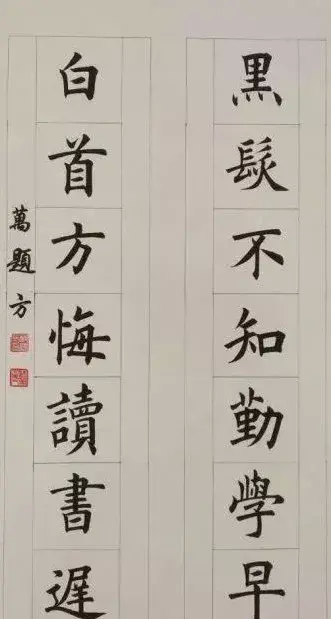 黑髮不知勤學早
白首方悔讀書遲
萬題方